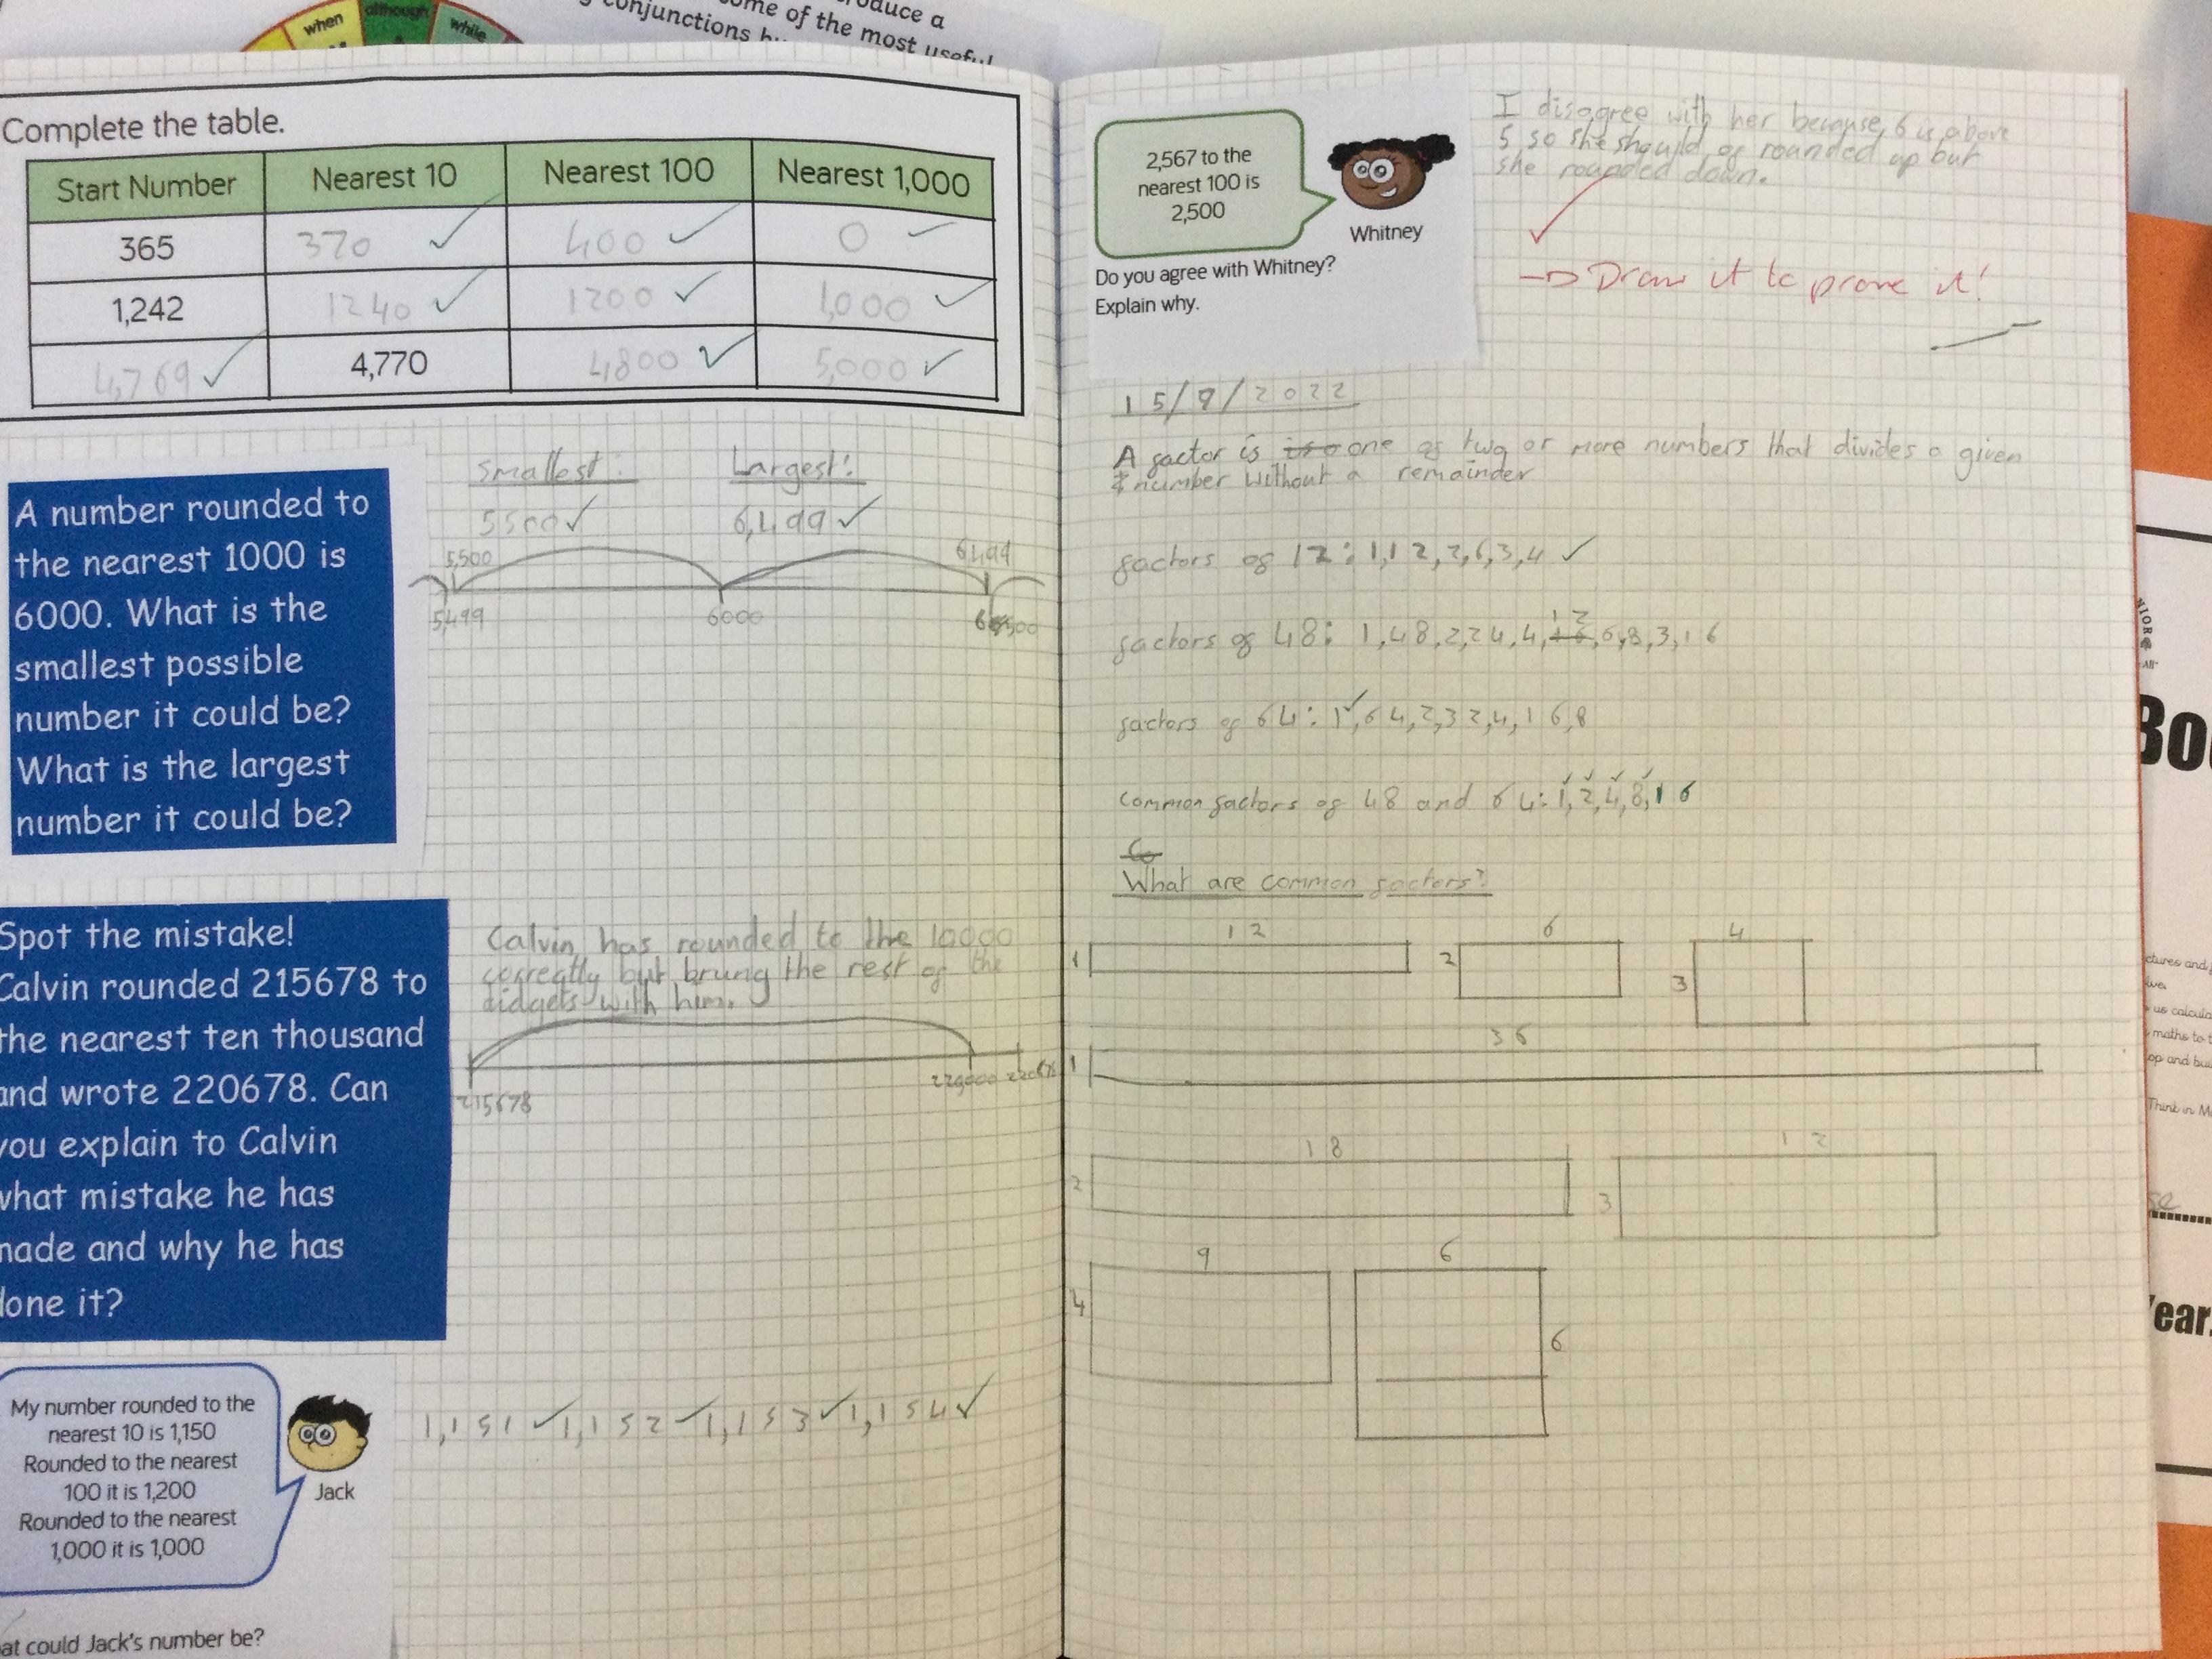 when
although
while
oduce a
ome of the most useful
conjunctions
Complete the table.
Start Number Nearest 10 Nearest 100 Nearest 1,000
365 370 400 0
1,242 1240 1200 1,000
4,769 4,770 4800 5,000
A number rounded to
the nearest 1000 is
6000. What is the
smallest possible
number it could be?
What is the largest
number it could be?
Smallest: Largest:
5500 6,499
5,500 6,499
5,499 6000
Spot the mistake!
Calvin rounded 215678 to
the nearest ten thousand
and wrote 220678. Can
you explain to Calvin
what mistake he has
made and why he has
done it?
Calvin has rounded to the 10000
correatly but brung the rest of the
didgets with him.
215678 220000 220678
My number rounded to the
nearest 10 is 1,150
Rounded to the nearest
100 it is 1,200
Rounded to the nearest
1,000 it is 1,000
Jack
at could Jack's number be?
1,151 1,152 1,153 1,154
2,567 to the
nearest 100 is
2,500
Whitney
Do you agree with Whitney?
Explain why.
I disagree with her because 6 is above
5 so she should of rounded up but
she rounded down.
Draw it to prove it!
15/9/2022
A factor is one of two or more numbers that divides a given
number without a remainder
factors of 12: 1,12,2,6,3,4
factors of 48: 1,48,2,24,4,12,6,8,3,16
factors of 64: 1,64,2,32,4,16,8
Common factors of 48 and 64: 1,2,4,8,16
Co
What are common factors?
12 6 4
1 2 3
36
1
18 12
2 3
9 6
4 6
Bo
Year
ctures and
us calcula
maths to t
op and bui
Think in M